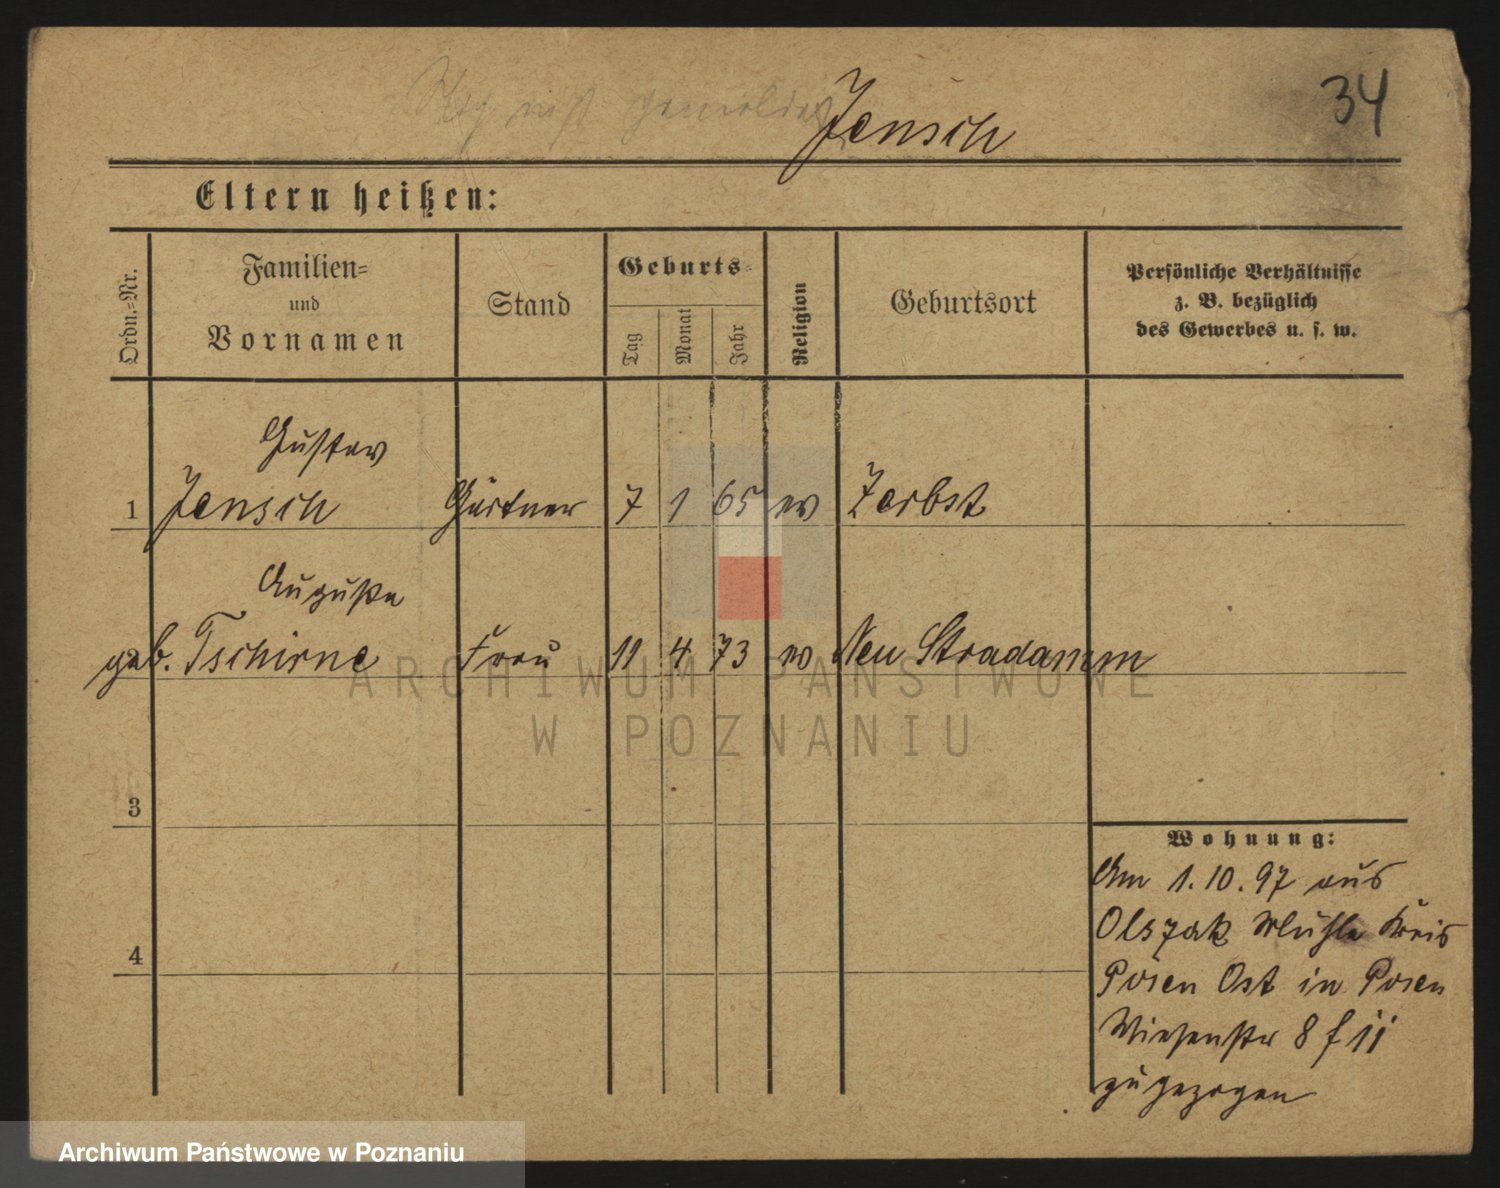 34
Jensch
Eltern heißen:
Ordn.=Nr.
Familien=
und
Vornamen
Stand
Geburts=
Tag
Monat
Jahr
Religion
Geburtsort
Persönliche Verhältnisse
z. B. bezüglich
des Gewerbes u. s. w.
Gustav
1 Jensch Gärtner 7 1 65 ev Zerbst
Auguste
geb. Tschirne Frau 11 4 73 ev Neu Stradamm
ARCHIWUM PAŃSTWOWE
W POZNANIU
3
4
Wohnung:
Am 1.10.97 aus
Olszak Mühle Kreis
Posen Ost in Posen
Wiesenstr 8 f II
zugezogen
Archiwum Państwowe w Poznaniu